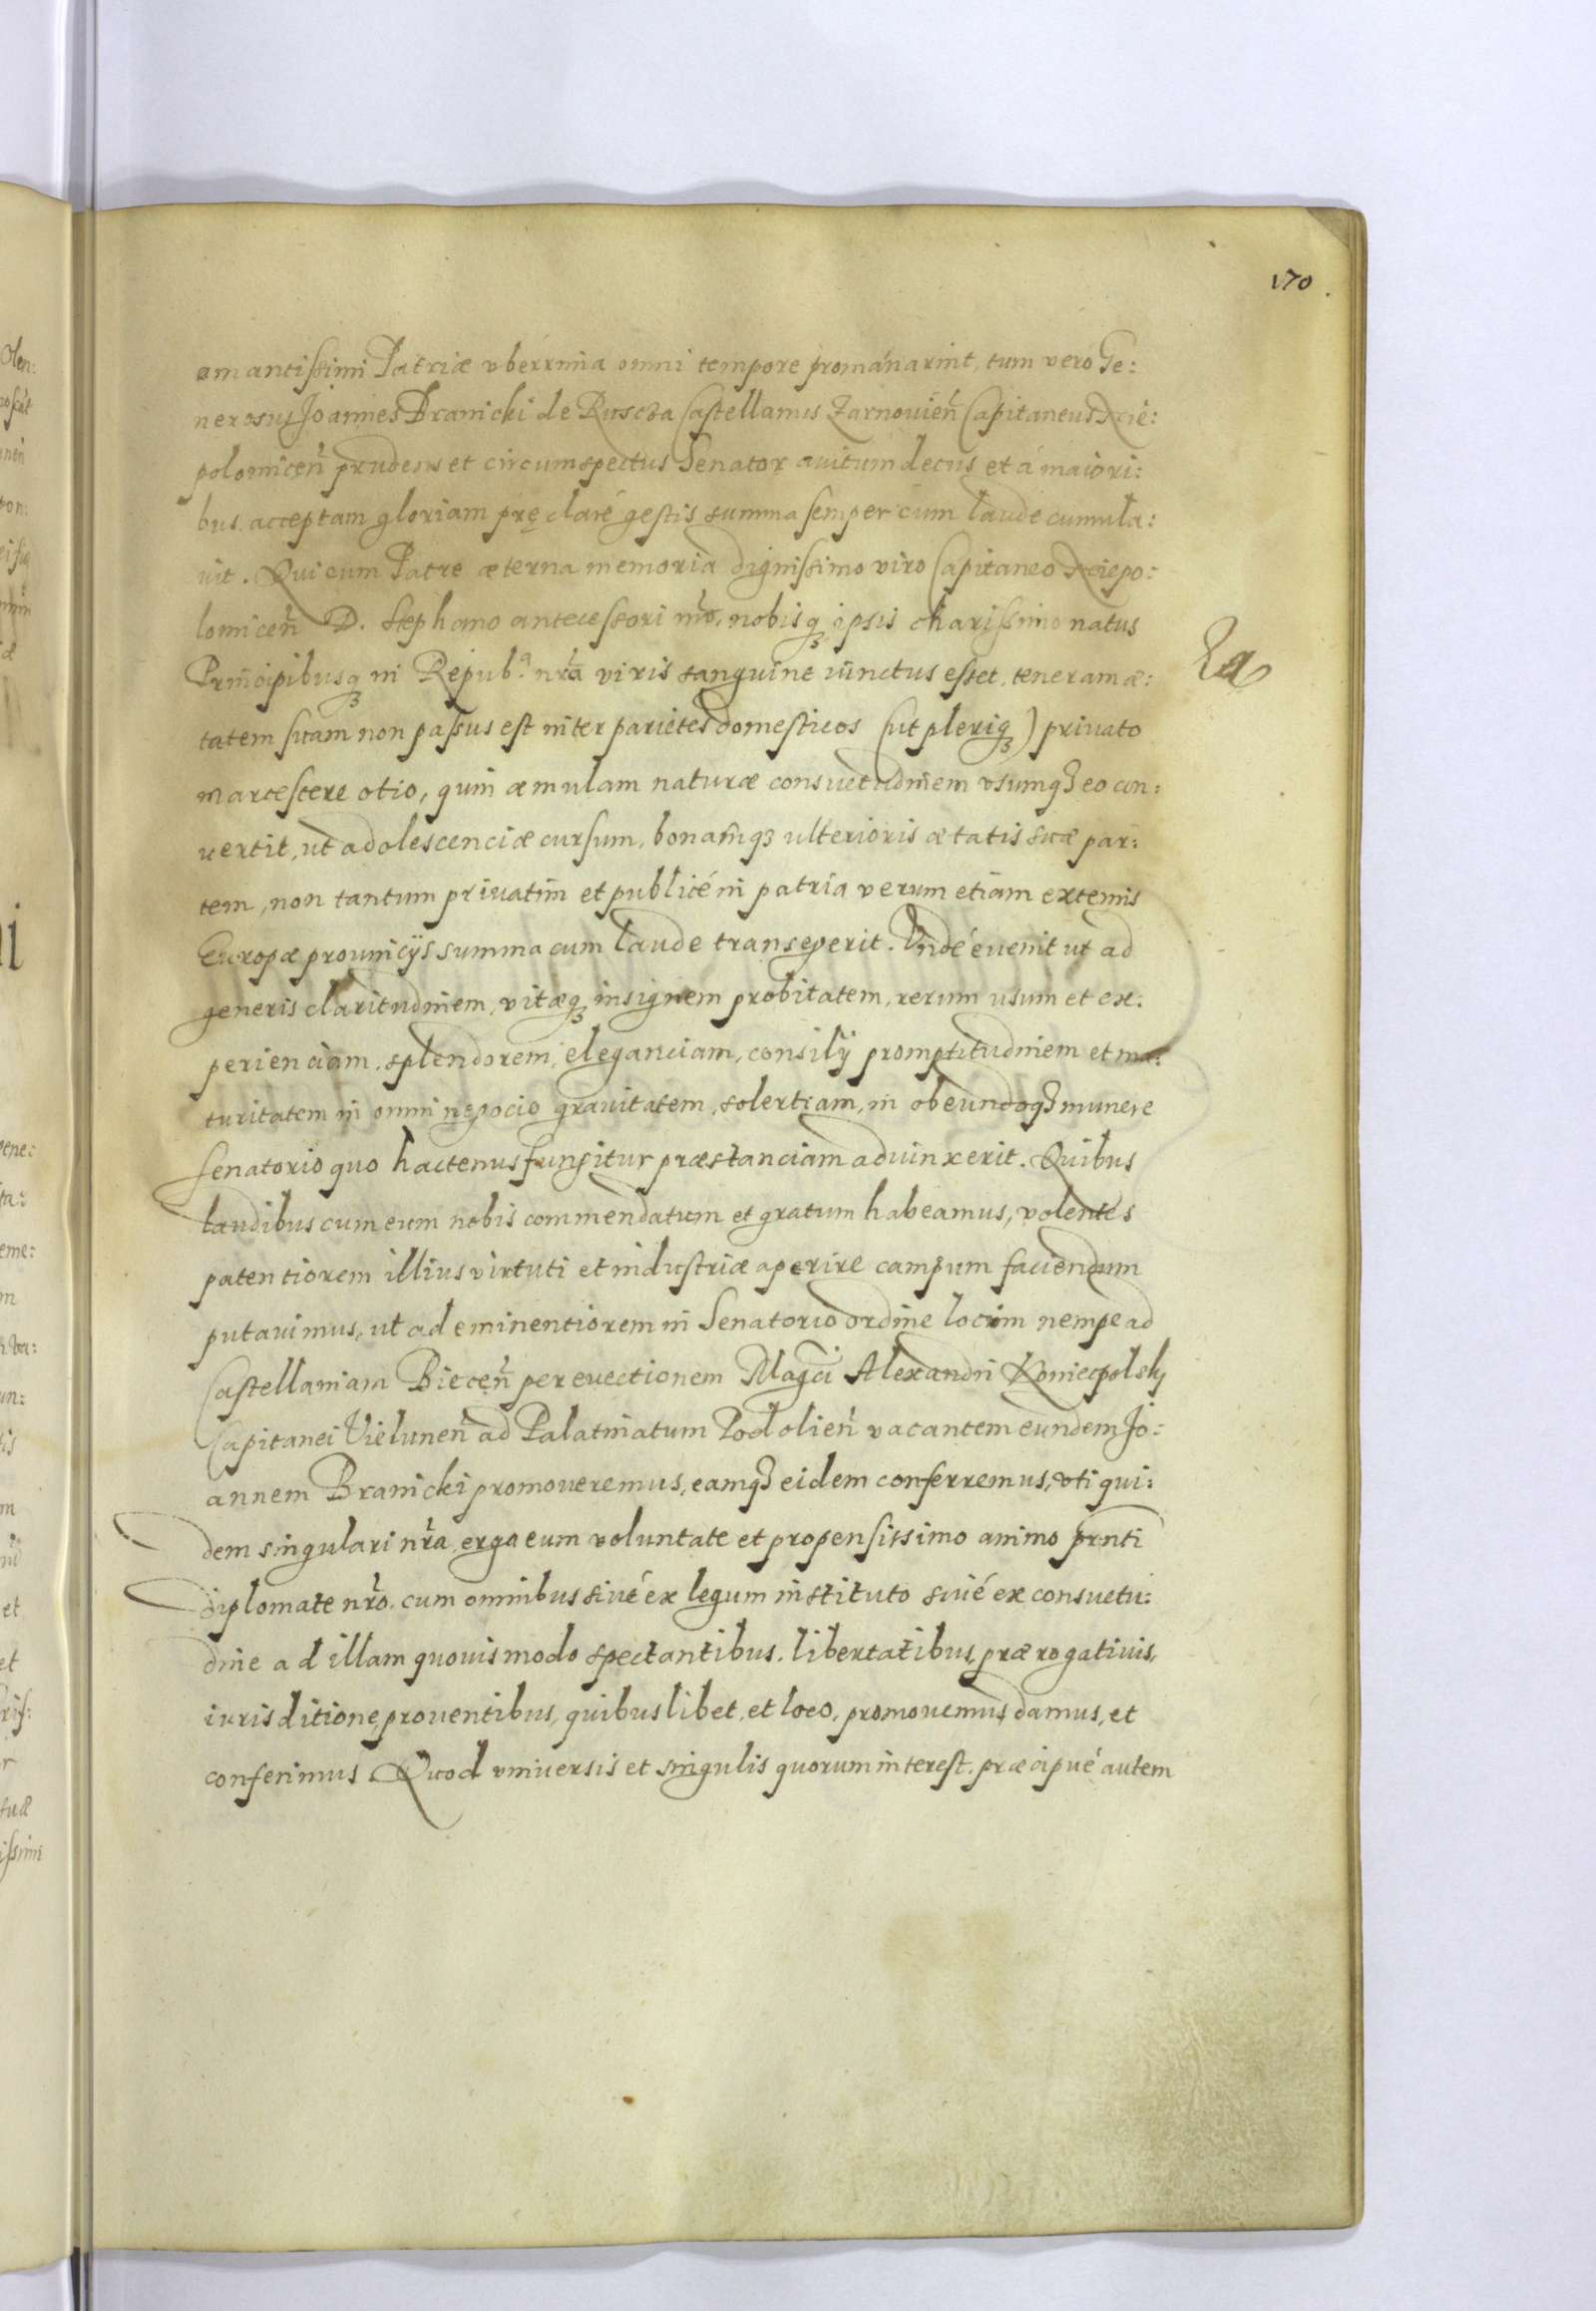 170
amantissimi Patriæ vberrima omni tempore promanarint, tum vero Ge:
nerosus Joannes Branicki de Ruscza Castellanus Zarnouien̄ Capitaneus Nie:
polomicen̄ prudens et circumspectus Senator auitum decus et á maiori:
bus acceptam gloriam pręclaré gestis summa semper cum laude cumula:
uit. Qui cum Patre æterna memoria dignissimo viro Capitaneo Niepo:
lomicen̄ D. Stephano antecessori nr̄o, nobisq3 ipsis charissimo natus
Principibusq3 in Repub.ᵃ nr̄a viris sanguine iunctus esset, teneram æ:
tatem suam non passus est inter parietes domesticos (ut pleriq3) priuato
marcescere otio, quin æmulam naturæ consuetudinem vsumq3 eo con:
uertit, ut adolescenciæ cursum, bonamq3 ulterioris ætatis suæ par:
tem, non tantum priuatim et publicé in patria verum etiam externis
Europæ prouincijs summa cum laude transegerit. Vndé euenit ut ad
generis claritudinem, vitæq3 insignem probitatem, rerum usum et ex:
perienciam, splendorem, eleganciam, consilij promptitudinem et ma:
turitatem in omni negocio grauitatem, solertiam, in obeundoq3 munere
senatorio quo hactenus fungitur præstanciam aduinxerit. Quibus
laudibus cum eum nobis commendatum et gratum habeamus, volentes
patentiorem illius virtuti et industriæ aperire campum faciendum
putauimus, ut ad eminentiorem in Senatorio ordine locum nempe ad
Castellaniam Biecen̄ per euectionem Mag̃ci Alexandri Koniecpolsky
Capitanei Vielunen̄ ad Palatinatum Podolien̄ vacantem eundem Jo:
annem Branicki promoueremus, eamq3 eidem conferremus, vti qui:
dem singulari nr̄a erga eum voluntate et propensissimo animo prn̄ti
diplomate nr̄o. cum omnibus siué ex legum instituto siué ex consuetu:
dine ad illam quouis modo spectantibus. libertatibus, prærogatiuis,
iurisditione, prouentibus, quibuslibet, et loco, promouemus, damus, et
conferimus. Quod vniuersis et singulis quorum interest, præcipué autem